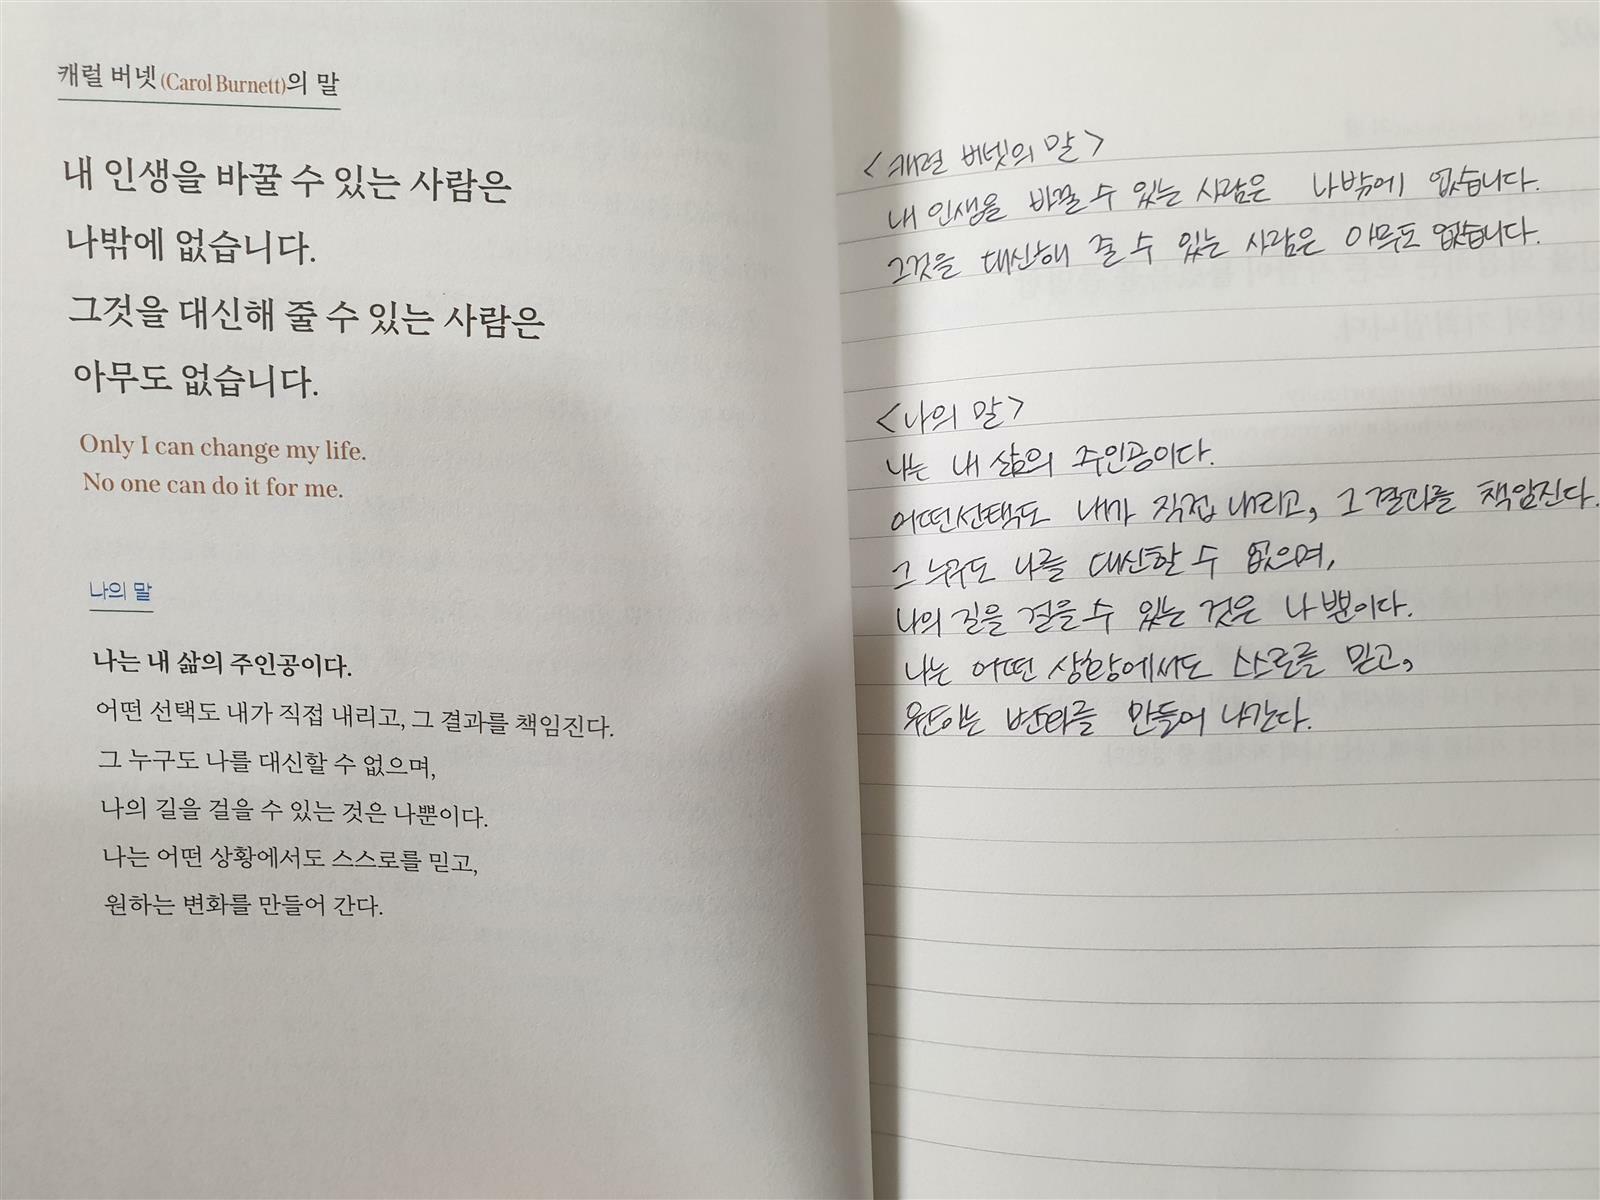 캐럴 버넷(Carol Burnett)의 말
내 인생을 바꿀 수 있는 사람은
나밖에 없습니다.
그것을 대신해 줄 수 있는 사람은
아무도 없습니다.
Only I can change my life.
No one can do it for me.
나의 말
나는 내 삶의 주인공이다.
어떤 선택도 내가 직접 내리고, 그 결과를 책임진다.
그 누구도 나를 대신할 수 없으며,
나의 길을 걸을 수 있는 것은 나뿐이다.
나는 어떤 상황에서도 스스로를 믿고,
원하는 변화를 만들어 간다.
<캐럴 버넷의 말>
내 인생을 바꿀 수 있는 사람은 나밖에 없습니다.
그것을 대신해 줄 수 있는 사람은 아무도 없습니다.
<나의 말>
나는 내 삶의 주인공이다.
어떤선택도 내가 직접 내리고, 그 결과를 책임진다.
그 누구도 나를 대신할 수 없으며,
나의 길을 걸을 수 있는 것은 나뿐이다.
나는 어떤 상황에서도 스스로를 믿고,
원하는 변화를 만들어 나간다.